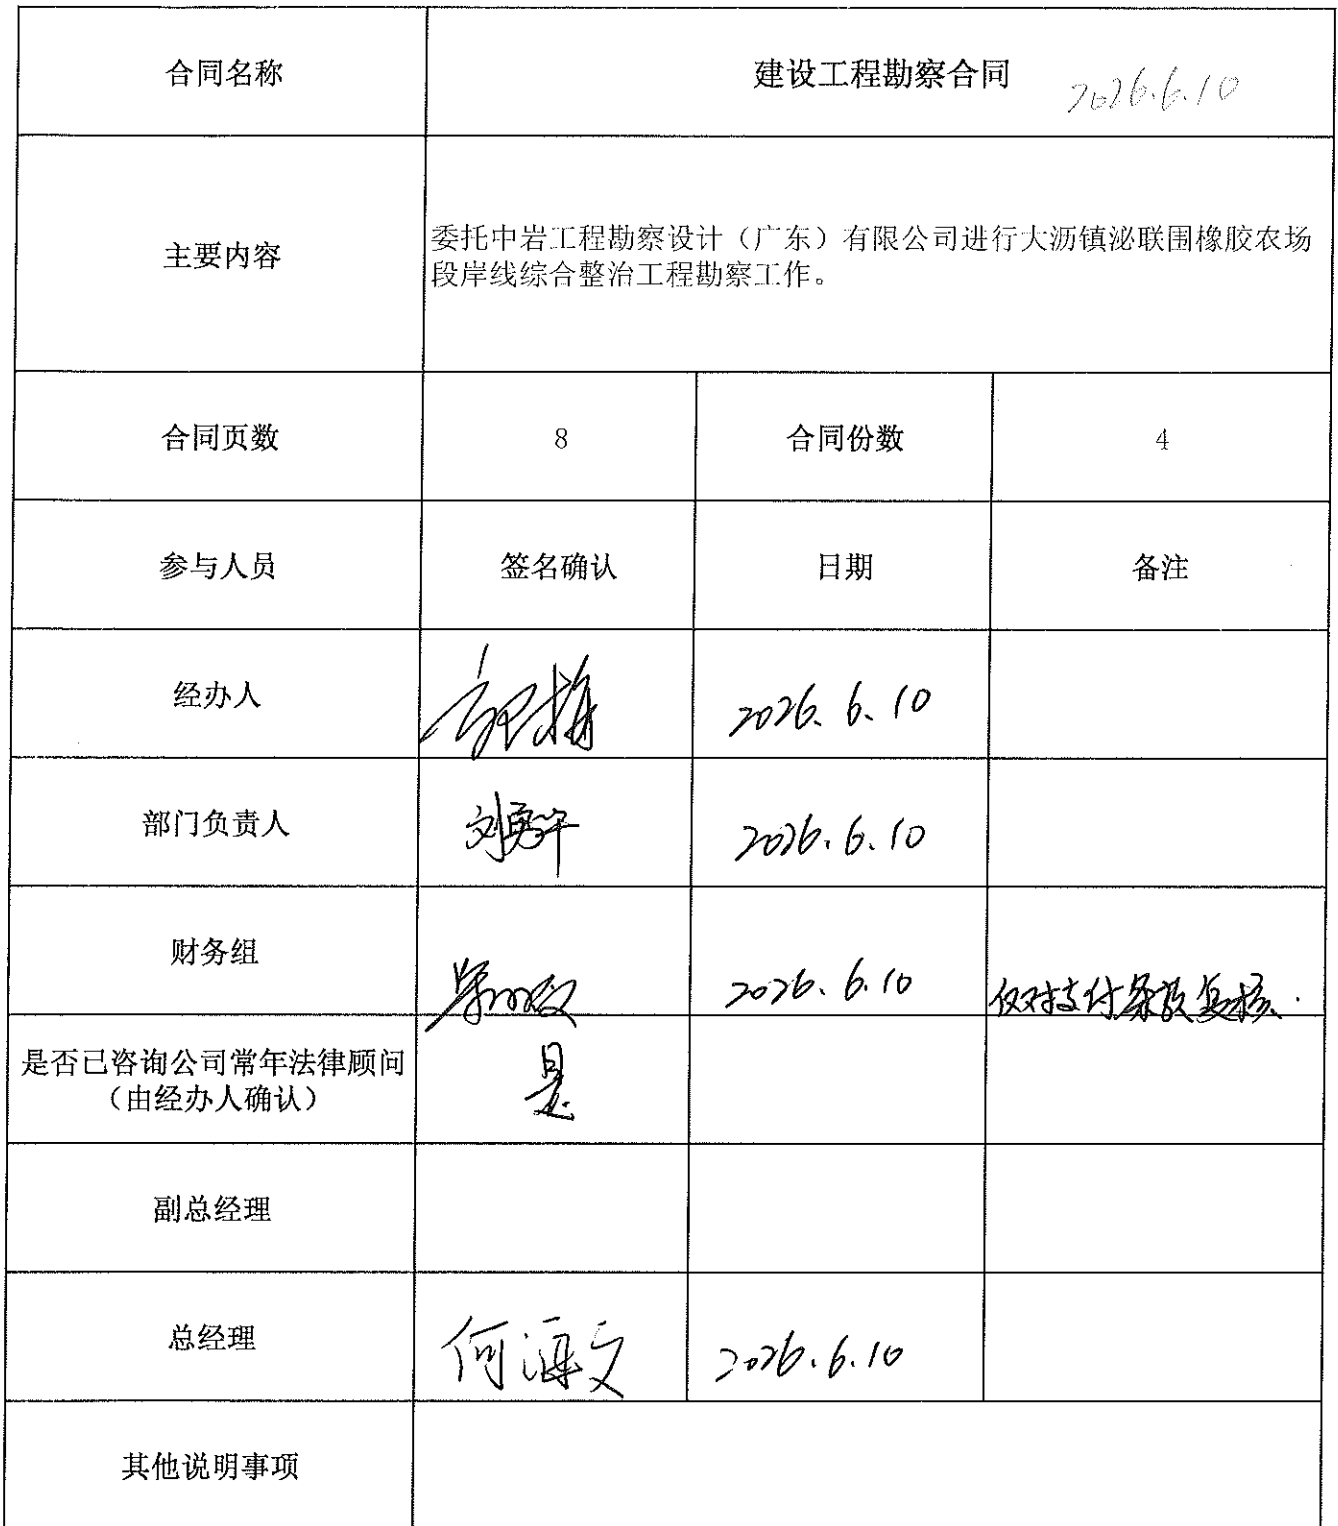 合同名称
建设工程勘察合同
2026.6.10
主要内容
委托中岩工程勘察设计（广东）有限公司进行大沥镇泌联围橡胶农场
段岸线综合整治工程勘察工作。
合同页数
8
合同份数
4
参与人员
签名确认
日期
备注
经办人
2026.6.10
部门负责人
2026.6.10
财务组
2026.6.10
仅对支付条款复核.
是否已咨询公司常年法律顾问
（由经办人确认）
是
副总经理
总经理
何海文
2026.6.10
其他说明事项